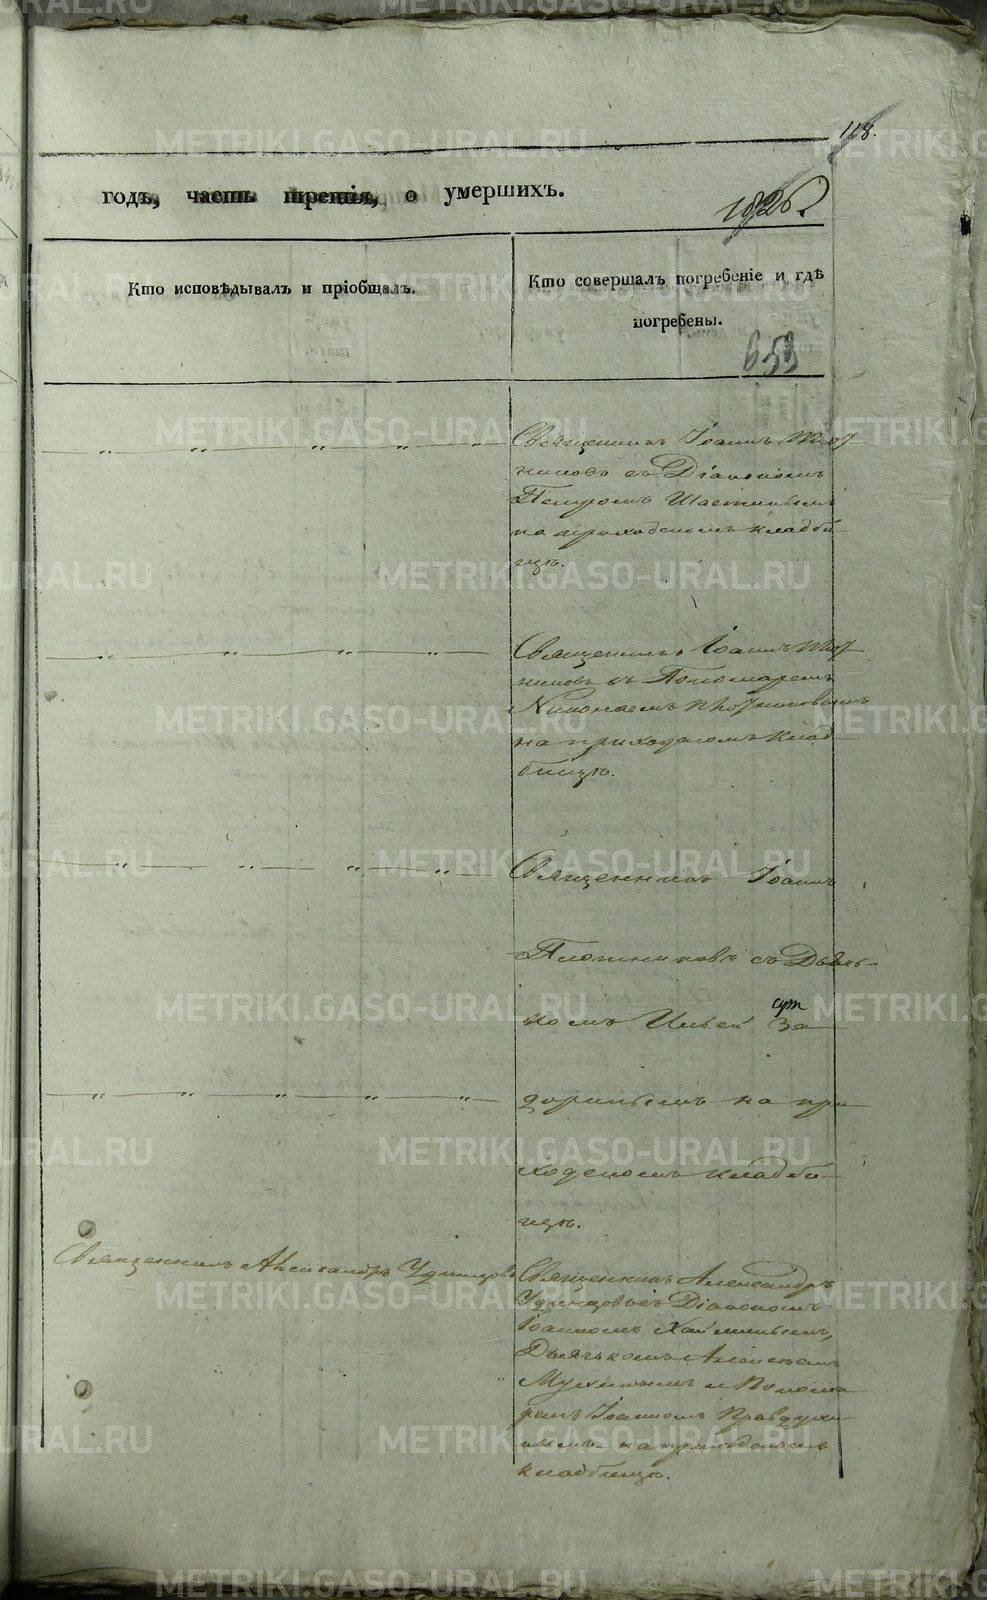 118.
годъ, часть третія, о умершихъ.
1826
Кто исповѣдывалъ и пріобщалъ.
Кто совершалъ погребеніе и гдѣ
погребены.
653
Священникъ Іоаннъ Плот
никовъ съ Діакономъ
Петромъ
на приходскомъ кладби-
щѣ.
Священникъ Іоаннъ Плот
никовъ съ Пономаремъ
Николаемъ Плотниковымъ
на приходскомъ клад
бищѣ.
Священникъ Іоаннъ
Плотниковъ съ Дьяч-
комъ Ильей За
доринымъ на при
ходскомъ кладби-
щѣ.
Священникъ Александръ Удинцовъ
Священникъ Александръ
Удинцовъ съ Діакономъ
Іоанномъ
Дьячкомъ Алексѣемъ
Мухинымъ и Понома
ремъ Іоанномъ Правдухи-
нымъ на приходскомъ
кладбищѣ.
METRIKI.GASO-URAL.RU